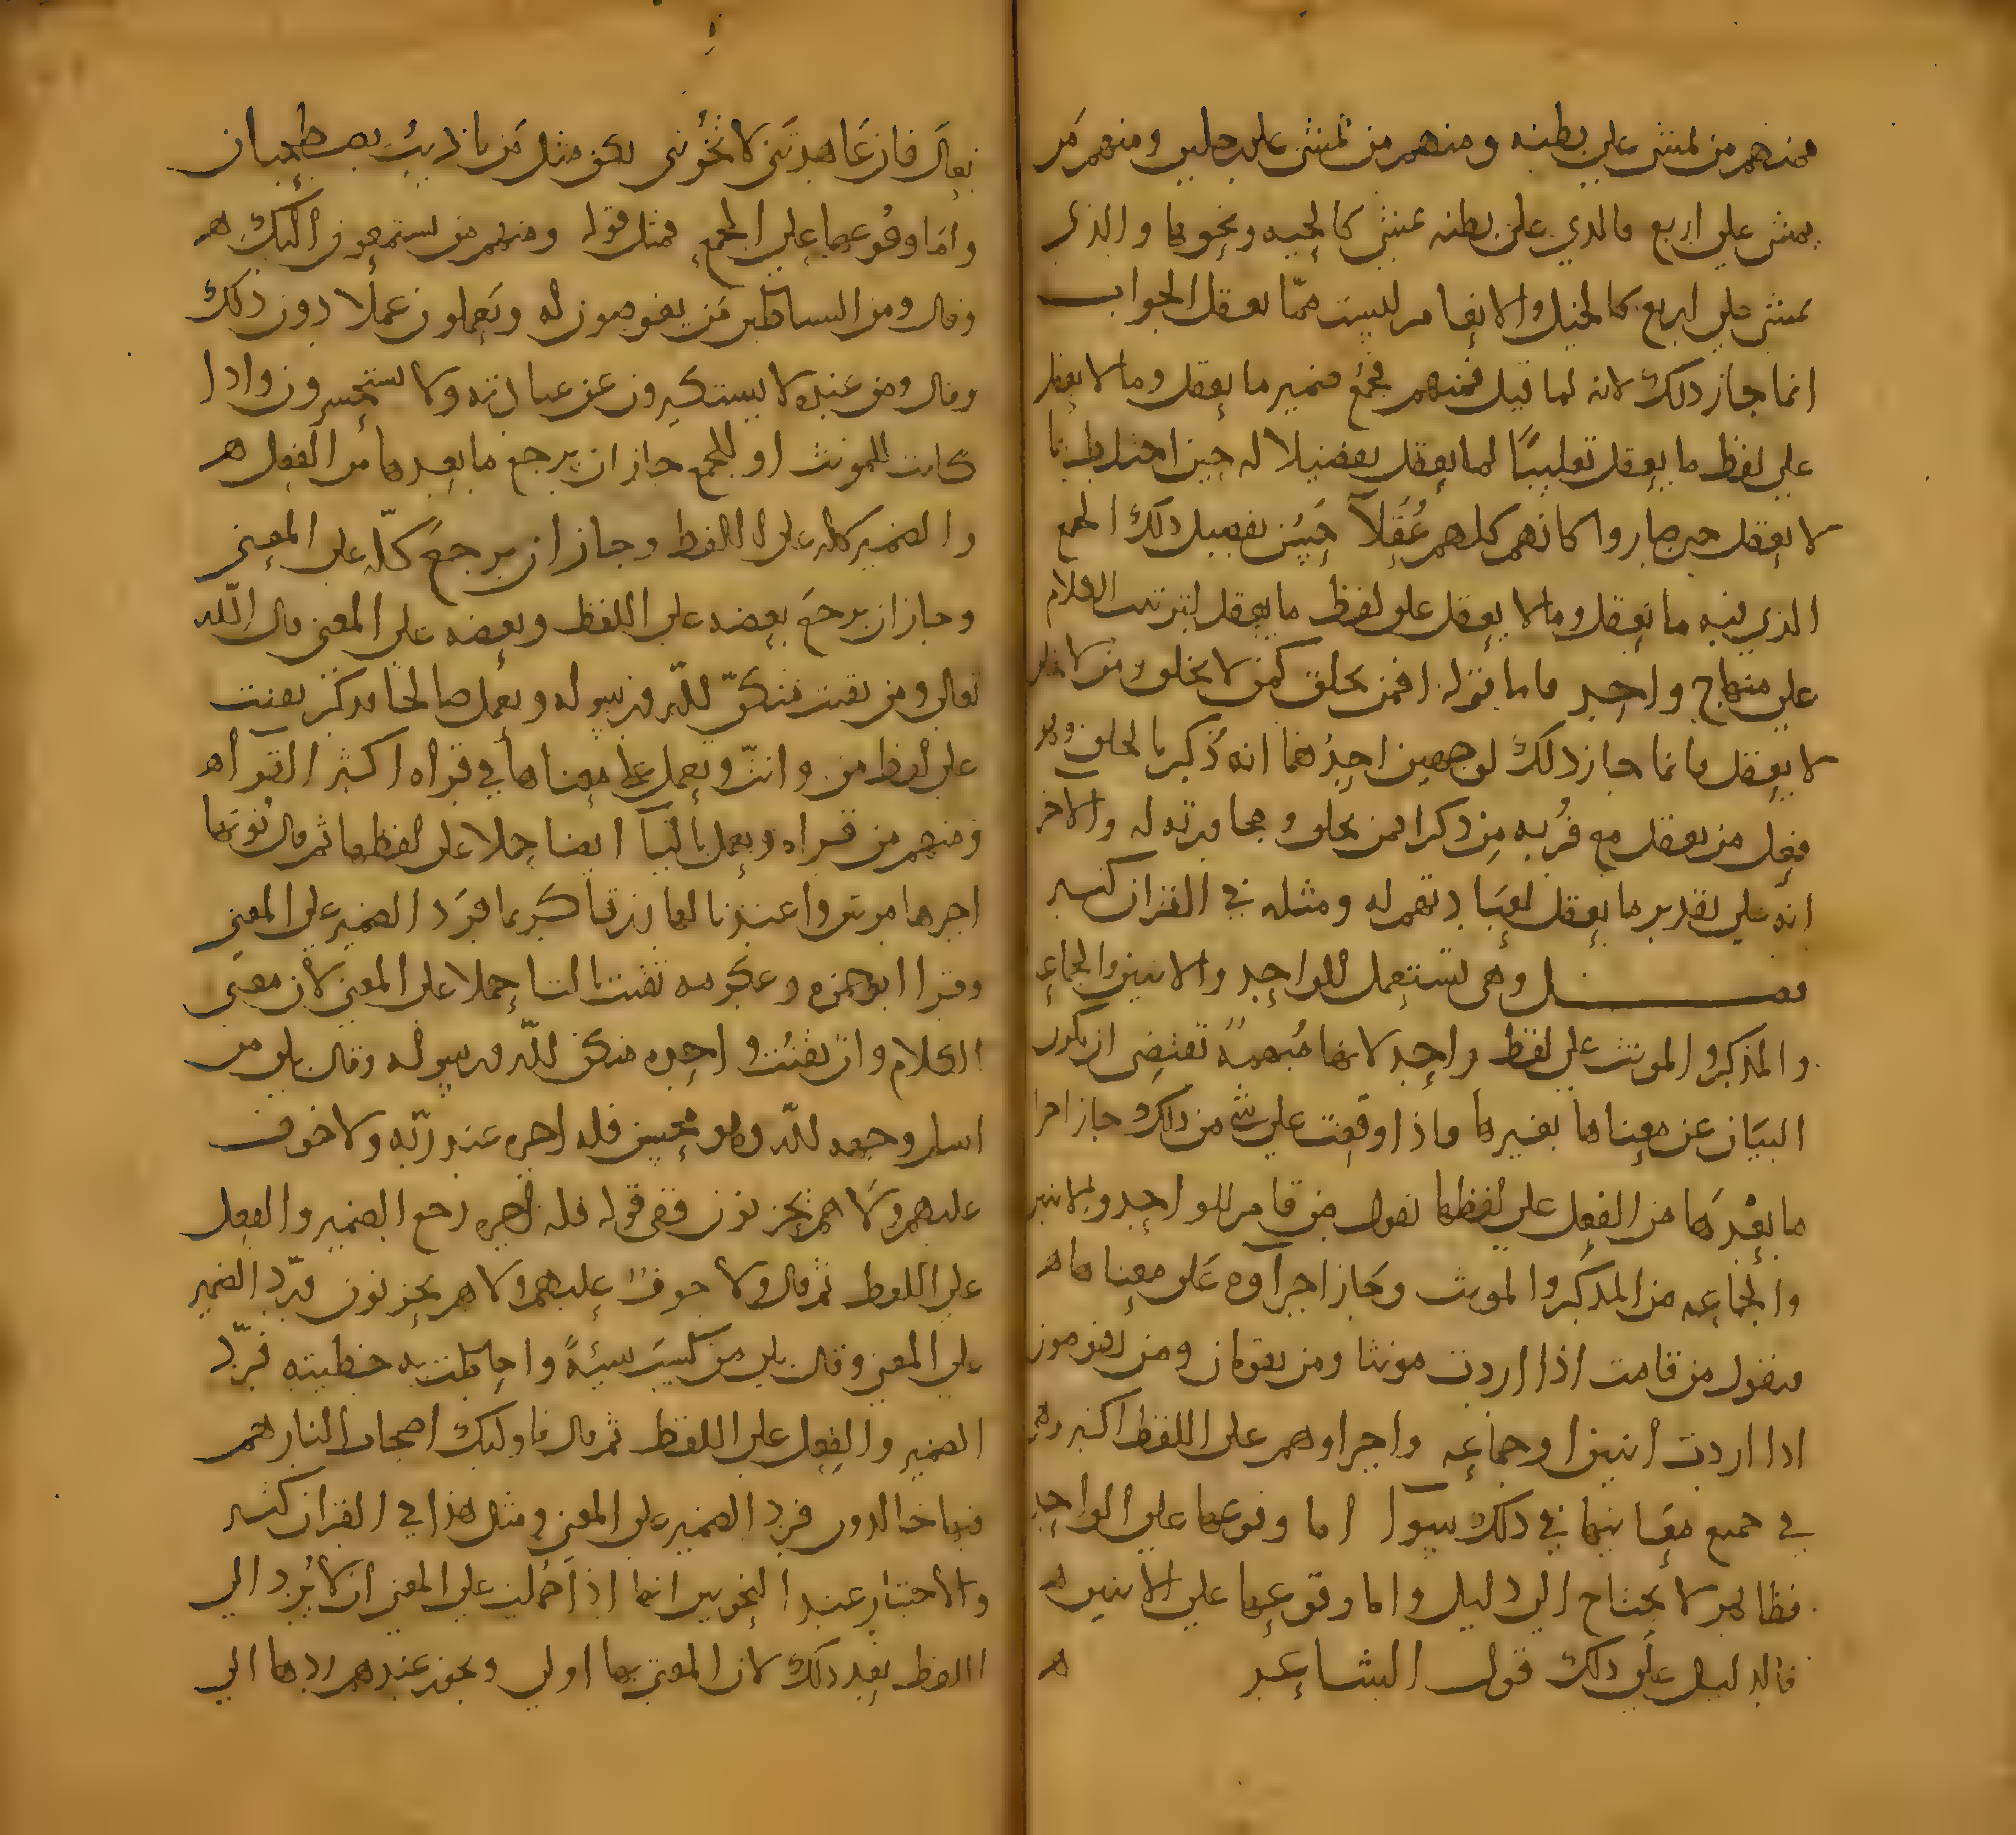 فمنهم من يمشي على بطنه ومنهم من يمشي على رجلين ومنهم من
يمشي على اربع فالذي على بطنه يمشي كالحيه ونحوها والذي
يمشي على اربع كالخيل والانعام ليست ممّا يعقل الجواب
انما جاز ذلك لانه لما قيل فمنهم فجمع ضمير ما يعقل وما لا يعقل
على لفظ ما يعقل تغليبًا لما يعقل تفضيلا له حين اختلط بما
لا يعقل حين صاروا كانهم كلهم عُقَلآ حَسُن تفصيل ذلك الجمع
الذي فيه ما يعقل وما لا يعقل على لفظ ما يعقل ليترتب الكلام
على منهاج واحد فاما قوله افمن يخلق كمن لا يخلق ومن لا يخلق
لا يعقل فانما جاز ذلك لوجهين احدُهما انه ذُكر بالخلق وهو
فعل من يعقل مع قُربه مِن ذكر افمن يخلق ومجاورته له والاخر
انه على تقدير ما يعقل لعِبَادتهم له ومثله في القران كثير
فصل وهي تستعمل للواحد والاثنين والجماعه
والمذكر والمونث على لفظ واحد لانها مُبهمة تقتضي ان يكون
البيَان عن معناها بغيرها فاذا وقعت على شي من ذلك جاز اجرا
ما بعْدهَا من الفعل على لفظها تقول من قام للواحد والاثنين
والجماعه من المذكر والمونث وجَاز اجراوه عَلى معناها ه
فتقول من قامت اذا اردت مونثا ومن يقومان ومن يقومون
اذا اردت اثنين او جماعه واجراوهم على اللفظ اكثر وهي
في جميع معَانيها في ذلك سوآ اما وقوعها على الواحد
فظاهر لا يحتاج الى دليل واما وقوعها على الاثنين ه
فالدليل على ذلك قول الشاعر ه
تعالَ فان عَاهدتَني لا تخُونني نكن مثل مَن يا ذيبُ يصطحبان
وامَا وقُوعها على الجمع فمثل قوله ومنهم من يستمعون اليك ه
وقال ومن الشياطين مَن يغوصون له ويَعملون عملا دون ذلك
وقال ومن عنده لا يستكبرون عن عبادته ولا يستحسرون واذا
كانت للمونث او للجمع جاز ان يرجع ما بعدها من الفعل ه
والضمير كله على اللفظ وجاز ان يرجعَ كلّه على المعنى
وجاز ان يرجعَ بعضه على اللفظ وبعضه على المعنى قال اللّه
تعالى ومن يقنت منكنّ للّه ورسوله وتعمل صالحا فذكّر يقنت
على لفظ من وانثّ وتعمل على معناها في قراه اكثر القراه
ومنهم من قراه ويعمل باليآ ايضا حملا على لفظها ثم قال نُوتها
اجرها مرتين واعتدنا لها رزقا كريما فرَد الضمير على المعنى
وقرا ابو حمزه وعكرمه تقنت بالتا حملا على المعنى لان معنى
الكلام وان تقنُت واحده منكن للّه ورسوله وقال بلى من
اسلم وجهه للّه وهو محسن فله اجره عند ربّه ولا خوف
عليهم ولَا هم يحزنون ففي قوله فله اجره رجع الضمير والفعل
على اللفظ ثم قال ولا خوفٌ عليهم ولا هم يحزنون فردّ الضمير
على المعنى وقال بلى من كسَبَ سيئةً واحاطت به خطيئته فردّ
الضمير والفعل على اللفظ ثم قال فاوليك اصحاب النار هم
فيها خالدون فرد الضمير على المعنى ومثل هذا في القران كثير
والاختيار عند النحويين انها اذا حُملت على المعنى ان لا يُرد الى
اللفظ بعد ذلك لان المعنى بها اولى ويجوز عندهم ردها الى